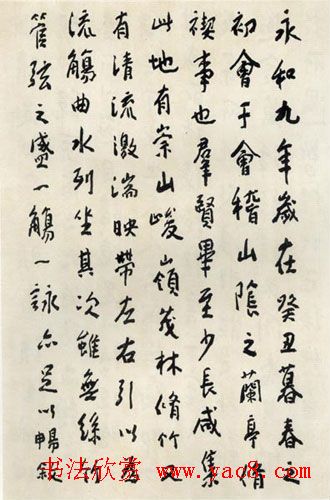 永和九年歲在癸丑暮春之
初會于會稽山陰之蘭亭脩
禊事也羣賢畢至少長咸集
此地有崇山峻嶺茂林脩竹又
有清流激湍映帶左右引以為
流觴曲水列坐其次雖無絲竹
管弦之盛一觴一詠亦足以暢叙
书法欣赏 www.yac8.com